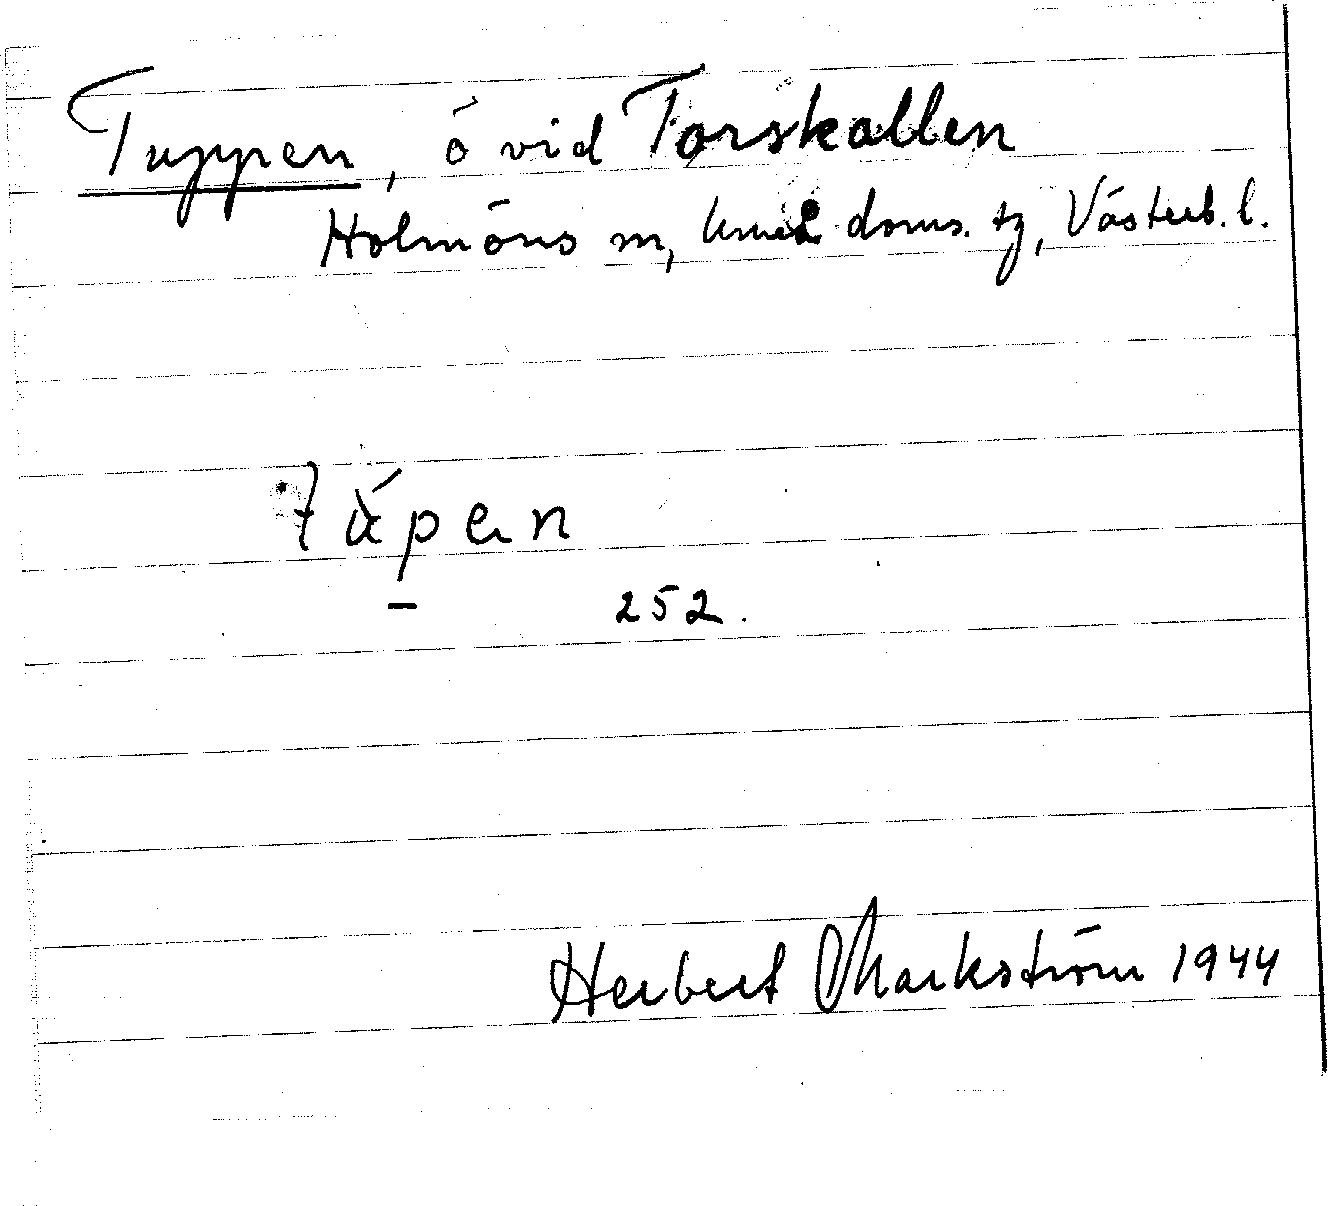 Tuppen, ö vid Torskallen
Holmöns sn, Umeå doms. tg, Västerb. l.
tàpen
252.
Herbert Markström 1944